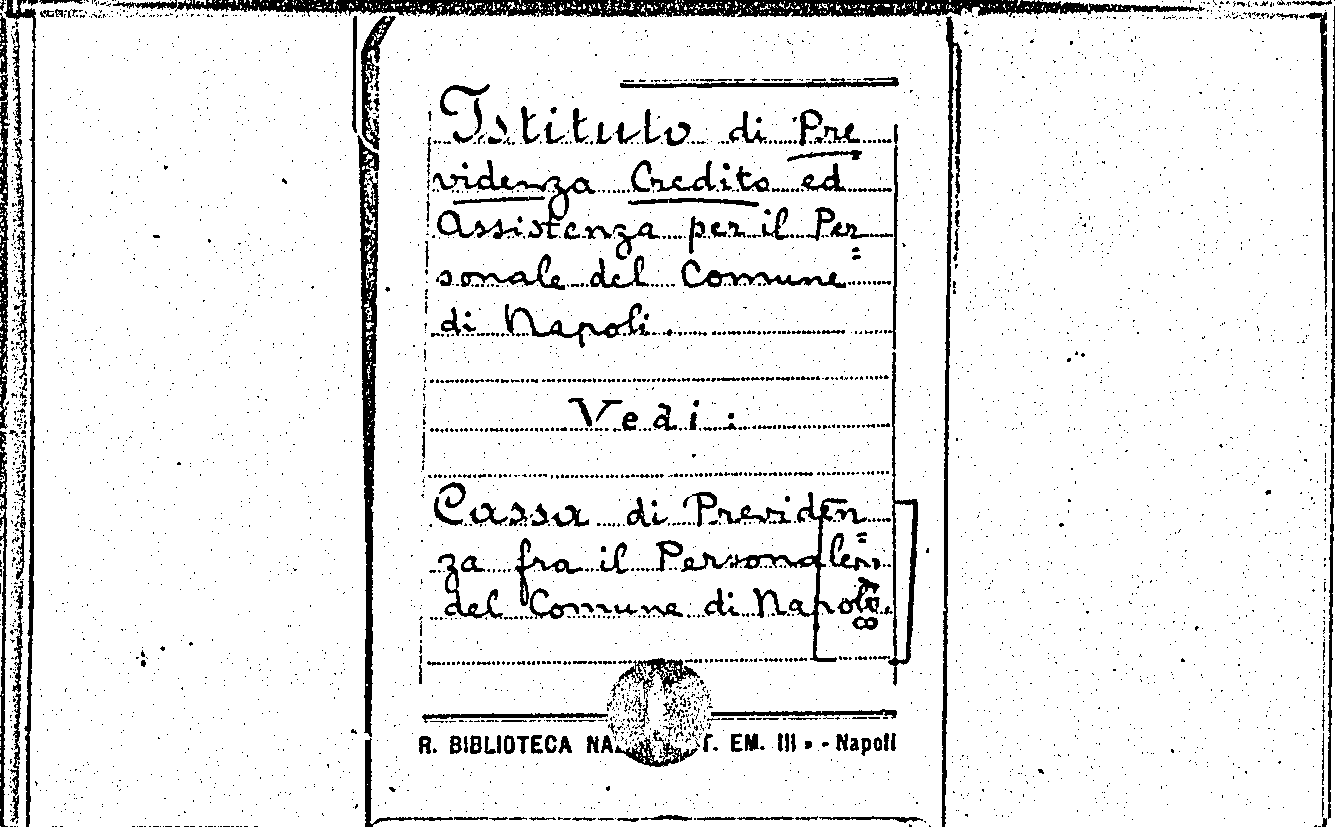 Istituto di Pre
videnza Credito ed
Assistenza per il Per=
sonale del Comune
di Napoli.
Vedi:
Cassa di Previden=
za fra il Personale
del Comune di Napoli.
R. BIBLIOTECA EM. III » - Napoli